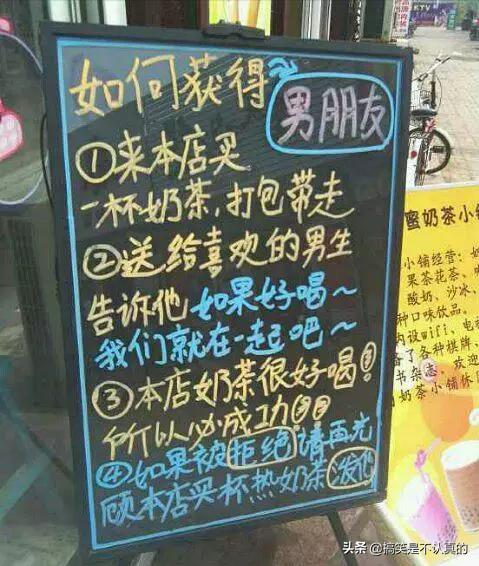 如何获得~
男朋友
①来本店买
一杯奶茶,打包带走
②送给喜欢的男生
告诉他 如果好喝~
我们就在一起吧~
③本店奶茶很好喝!
所以必成功!!
④如果被拒绝请再光
顾本店买杯热奶茶泼他
KTV
蜜奶茶小铺
小铺经营:奶
果茶花茶、咖
酸奶、沙冰、
种口味饮品。
内设wifi、电
备了各种棋牌、
书杂志、欢迎
奶茶小铺休
头条 @搞笑是不认真的